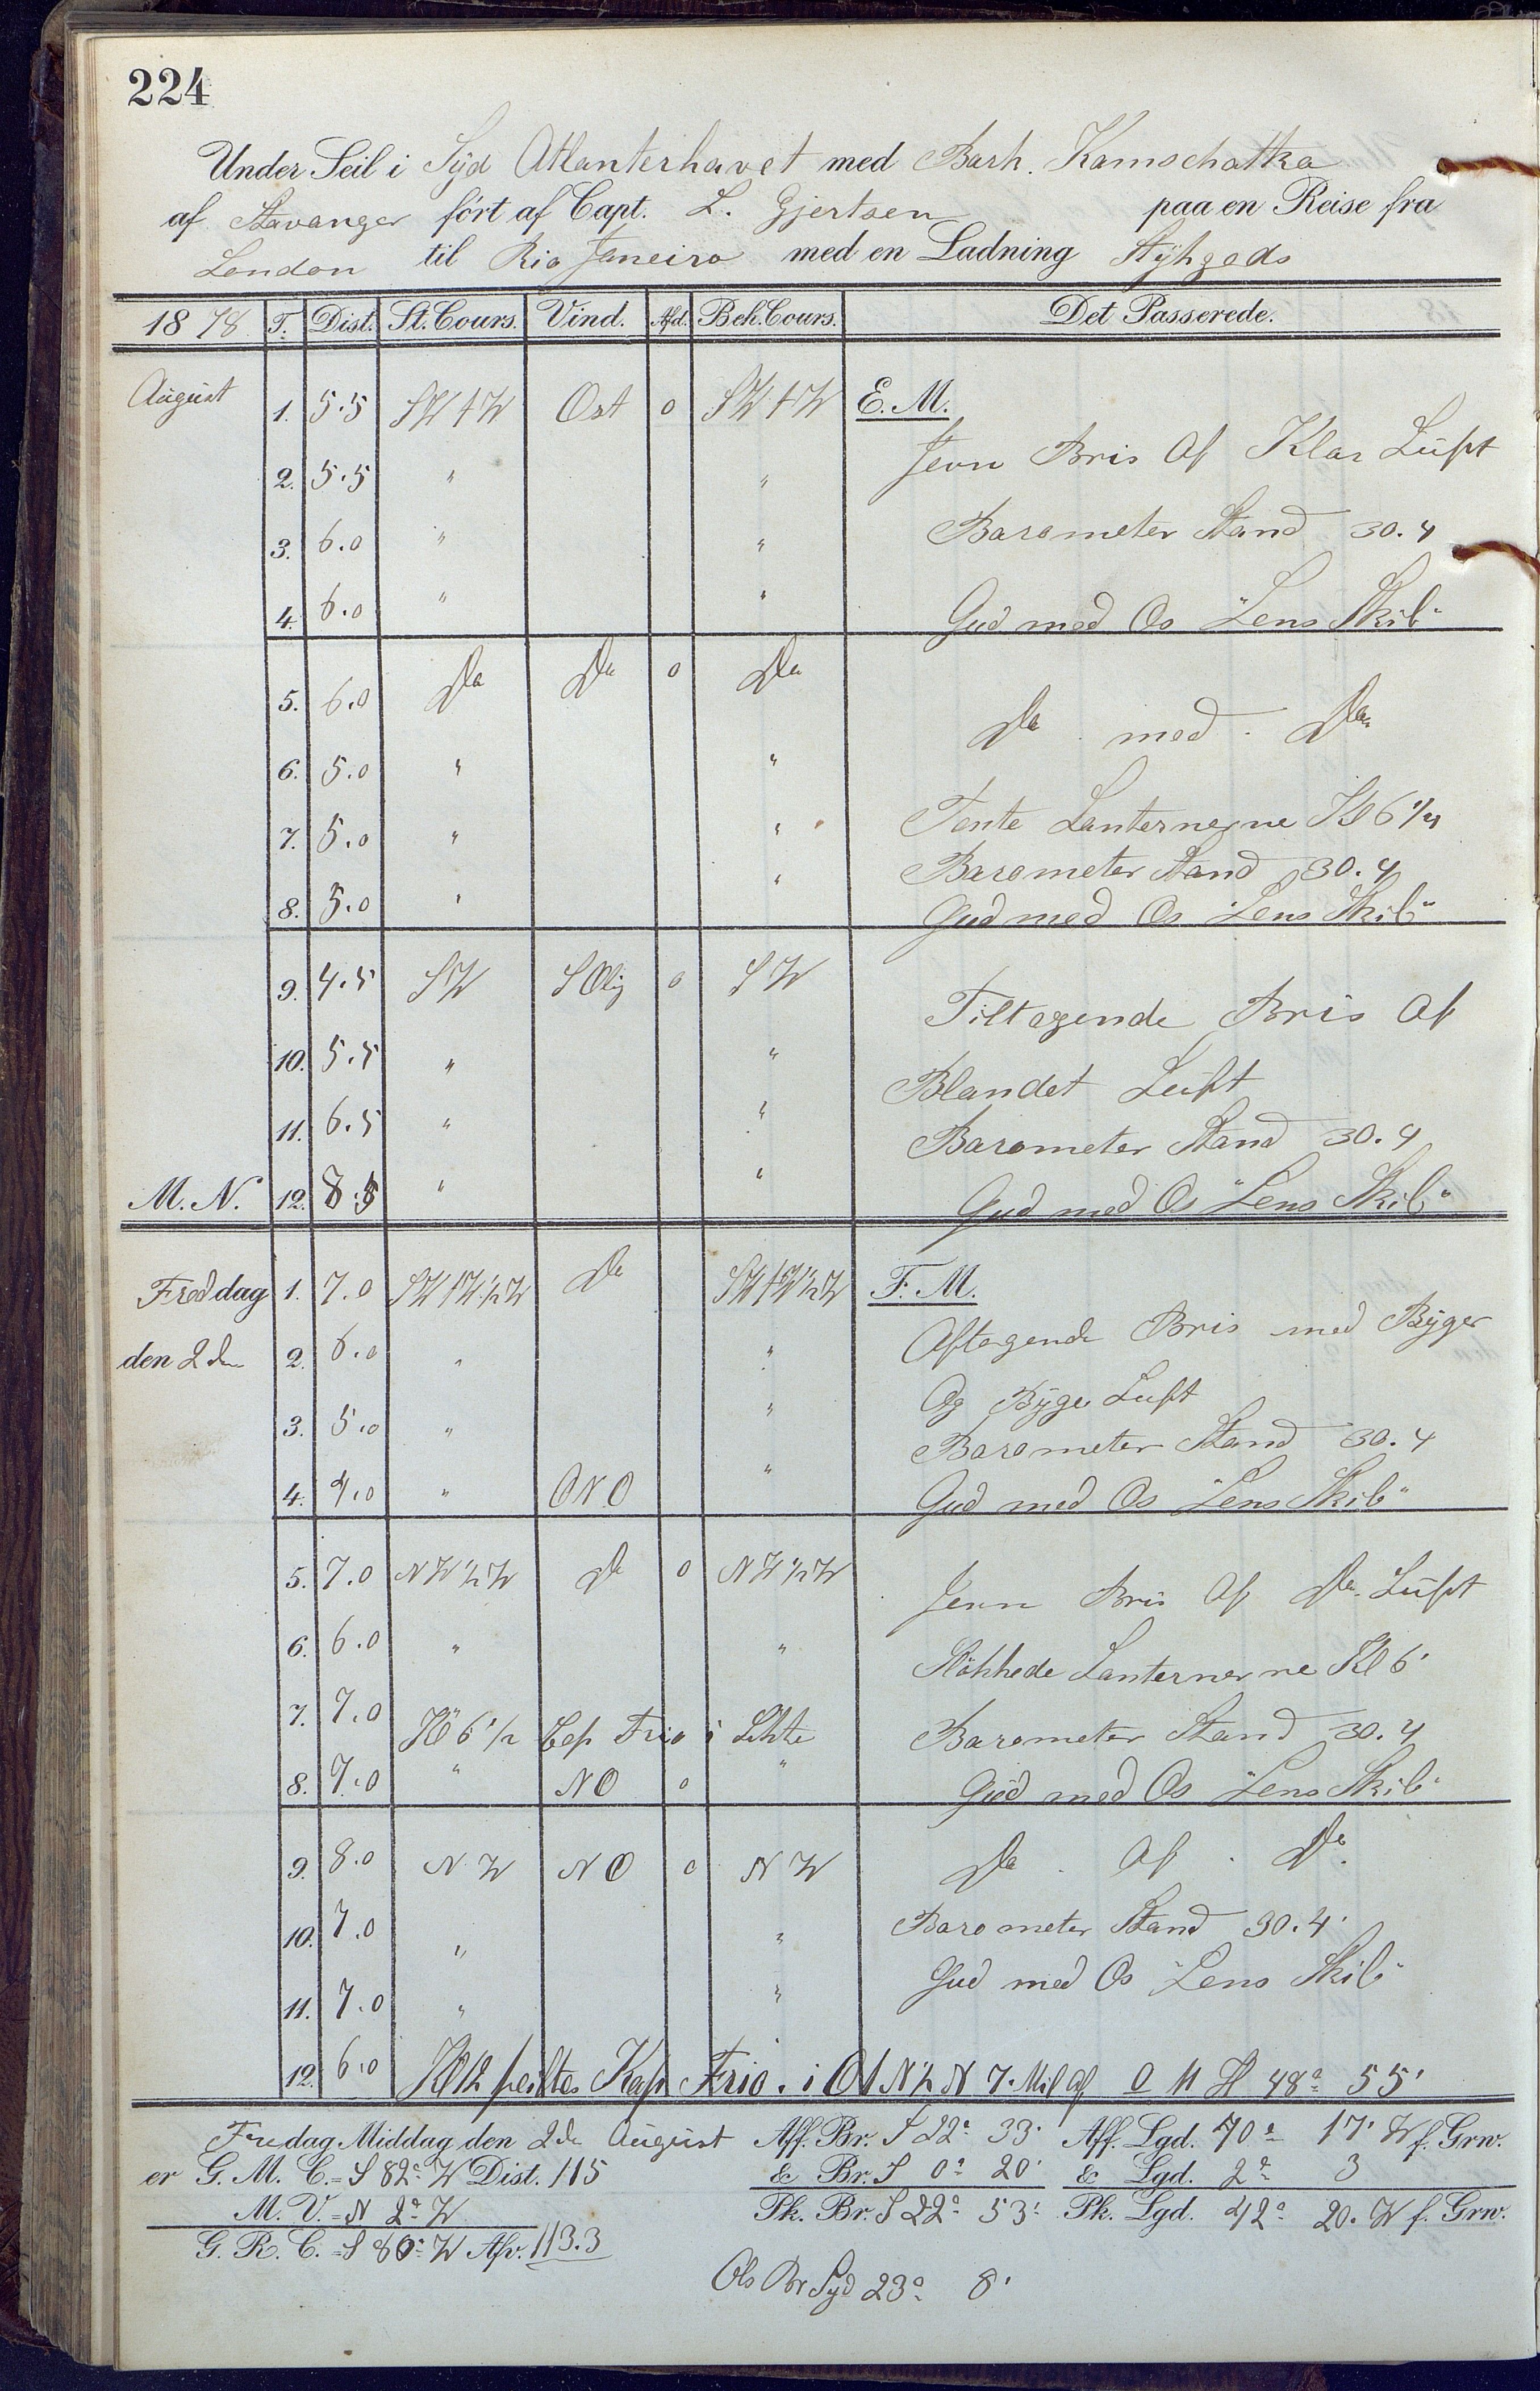 224
Under Seil i Syd Atlanterhavet med Bark. Kamschatka
af Stavanger fört af Capt. L. Gjertsen paa en Reise fra
London til Rio Janeiro med en Ladning Stÿkgods
1878 T. Dist. St. Cours. Vind. Afd. Beh. Cours. Det Passerede.
August 1. 5.5 SW t W Ost 0 SW t W E. M.
Jevn Bris Af Klar Luft
2. 5.5 " "
3. 6.0 " " Barometer Stand 30.4
4. 6.0 " " Gud med Os "Lens Skib"
5. 6.0 Do Do 0 Do
Do med Do
6. 5.0 " "
7. 5.0 " " Tente Lanternerne Kl 6 1/4
Barometer Stand 30.4
8. 5.0 " " Gud med Os "Lens Skib"
9. 4.5 SW S Olig 0 SW
Tiltagende Bris Af
10. 5.5 " "
Blandet Luft
11. 6.5 " " Barometer Stand 30.4
M. N. 12. 8.5 " " Gud med Os "Lens Skib"
Freddag 1. 7.0 SW t W 1/2 W Do SW t W 1/2 W F. M.
Aftagende Bris med Bÿger
den 2den 2. 6.0 " "
Og Bÿge Luft
3. 5.0 " " Barometer Stand 30.4
4. 4.0 " ONO " Gud med Os "Lens Skib"
5. 7.0 NW 1/2 W Do 0 NW 1/2 W
Jevn Bris Af Do Luft
6. 6.0 " " Slökkede Lanternerne Kl 6'
7. 7.0 Kl 6 1/2 Cap Frio i Sikte Barometer Stand 30.4
8. 7.0 " NO 0 " Gud med Os "Lens Skib"
9. 8.0 NW NO 0 NW Do Af Do
10. 7.0 " " Barometer Stand 30.4
Gud med Os "Lens Skib"
11. 7.0 " "
12. 6.0 Kl 12 peiltes Kap Frio i O t N 1/2 N 7. Mil af 48° 55'
Fredag Middag den 2de August Aff. Br. S 22° 33' Aff. Lgd. 70° 17' W f. Grw.
er G. M. C. = S 82° W Dist. 115 & Br. S 0° 20' & Lgd. 2° 3
M. V. = N 2° W Pk. Br. S 22° 53' Pk. Lgd. 42° 20. W f. Grw.
G. R. C. = S 80° W Afv. 113.3
Obs Br Syd 23° 8'